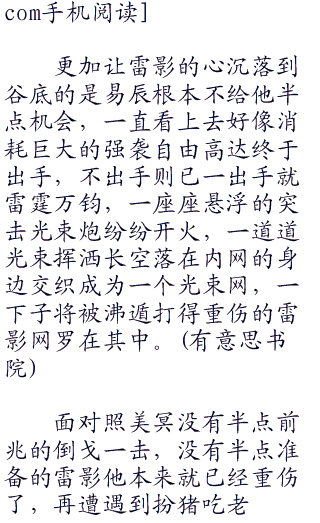 com手机阅读]
更加让雷影的心沉落到
谷底的是易辰根本不给他半
点机会，一直看上去好像消
耗巨大的强袭自由高达终于
出手，不出手则已一出手就
雷霆万钧，一座座悬浮的突
击光束炮纷纷开火，一道道
光束挥洒长空落在内网的身
边交织成为一个光束网，一
下子将被沸遁打得重伤的雷
影网罗在其中。(有意思书
院)
面对照美冥没有半点前
兆的倒戈一击，没有半点准
备的雷影他本来就已经重伤
了，再遭遇到扮猪吃老